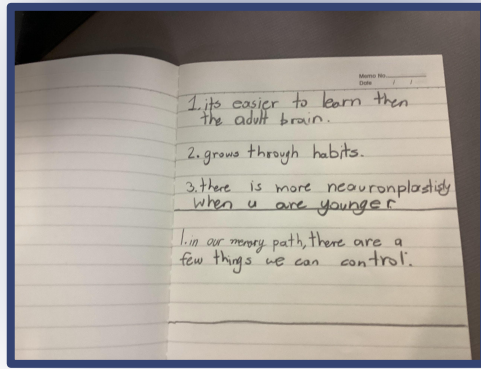 Memo No.
Date / /
1. its easier to learn then
the adult brain.
2. grows through habits.
3. there is more neauronplastisty
when u are younger
1. in our memory path, there are a
few things we can control.